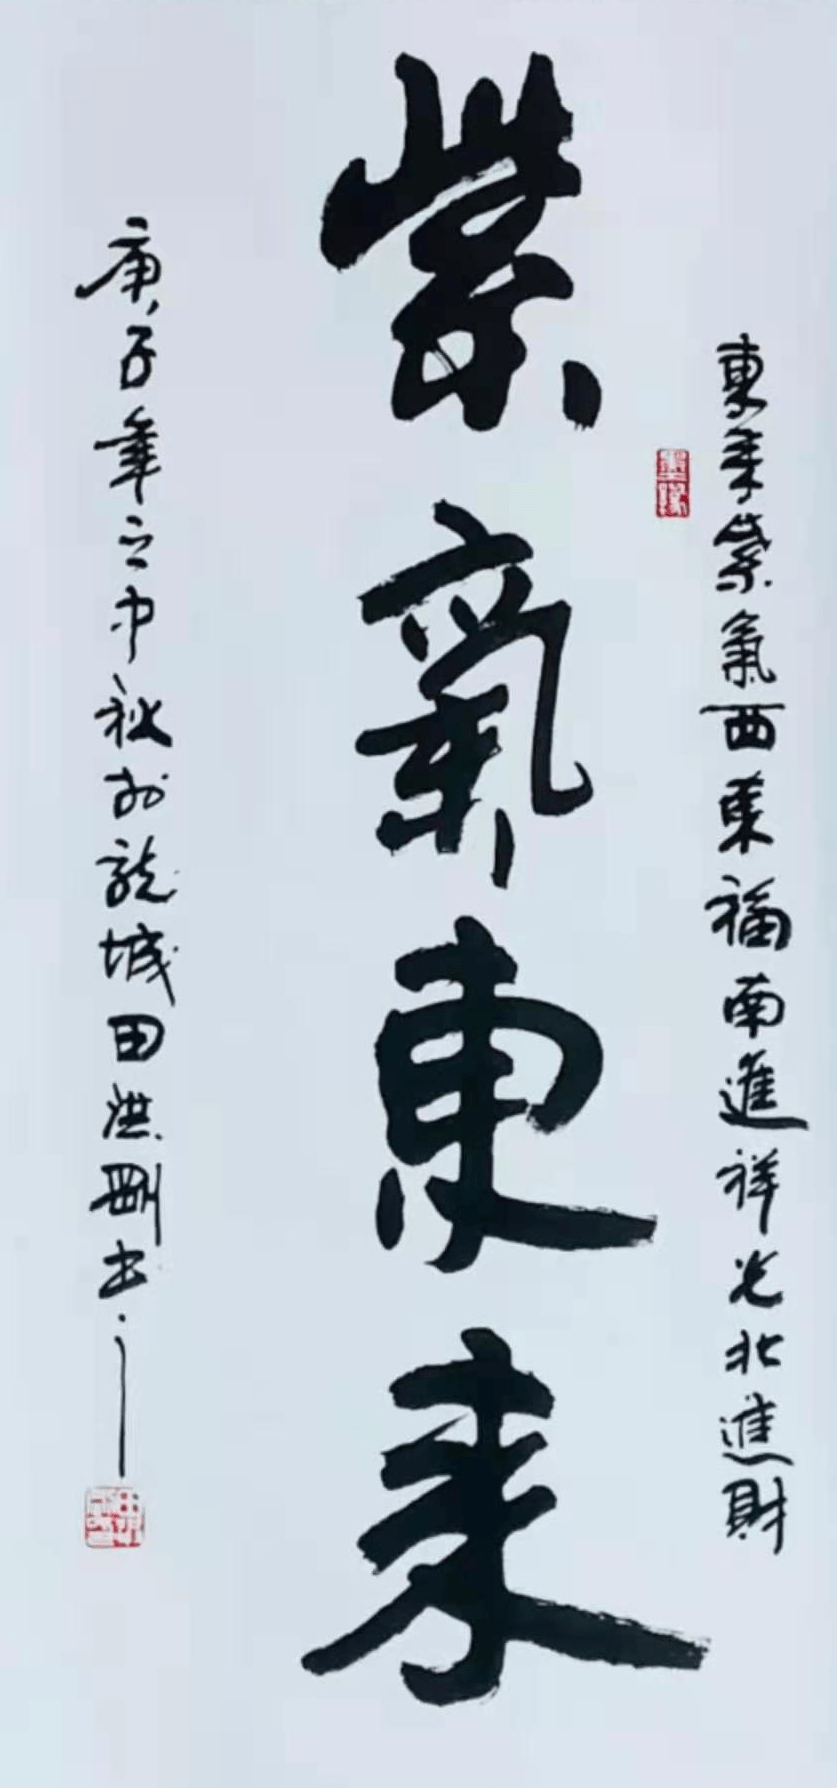 東来紫氣西来福南進祥光北進財
紫氣東来
庚子年之中秋於龍城田洪剛书